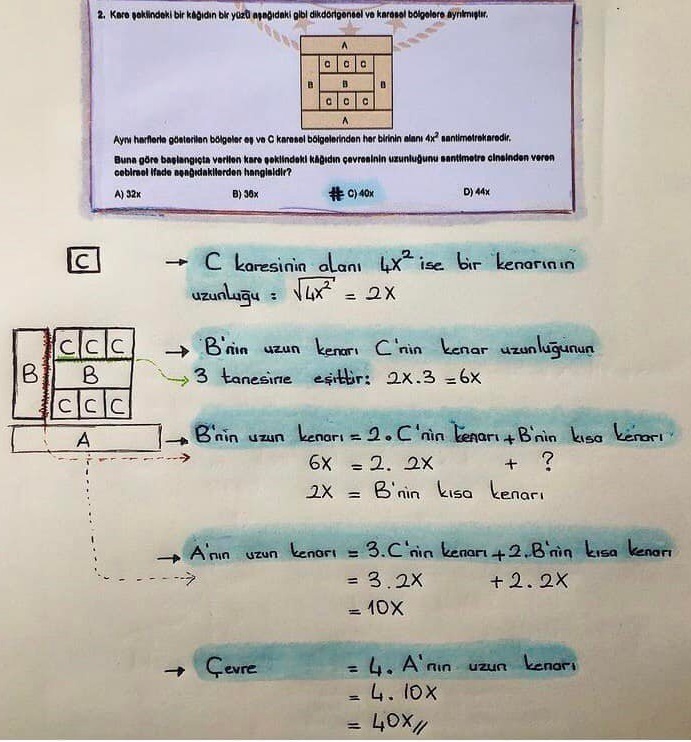 2. Kare şeklindeki bir kâğıdın bir yüzü aşağıdaki gibi dikdörtgensel ve karesel bölgelere ayrılmıştır.
A
C C C
B B B
C C C
A
Aynı harflerle gösterilen bölgeler eş ve C karesel bölgelerinden her birinin alanı 4x² santimetrekaredir.
Buna göre başlangıçta verilen kare şeklindeki kâğıdın çevresinin uzunluğunu santimetre cinsinden veren
cebirsel ifade aşağıdakilerden hangisidir?
A) 32x B) 36x # C) 40x D) 44x
C → C karesinin alanı 4x² ise bir kenarının
uzunluğu : √4x² = 2x
C C C → B'nin uzun kenarı C'nin kenar uzunluğunun
B B 3 tanesine eşittir: 2x.3 = 6x
C C C
A → B'nin uzun kenarı = 2.C'nin kenarı + B'nin kısa kenarı
6x = 2. 2x + ?
2x = B'nin kısa kenarı
→ A'nın uzun kenarı = 3.C'nin kenarı + 2.B'nin kısa kenarı
= 3.2x + 2.2x
= 10x
→ Çevre = 4. A'nın uzun kenarı
= 4. 10x
= 40x//